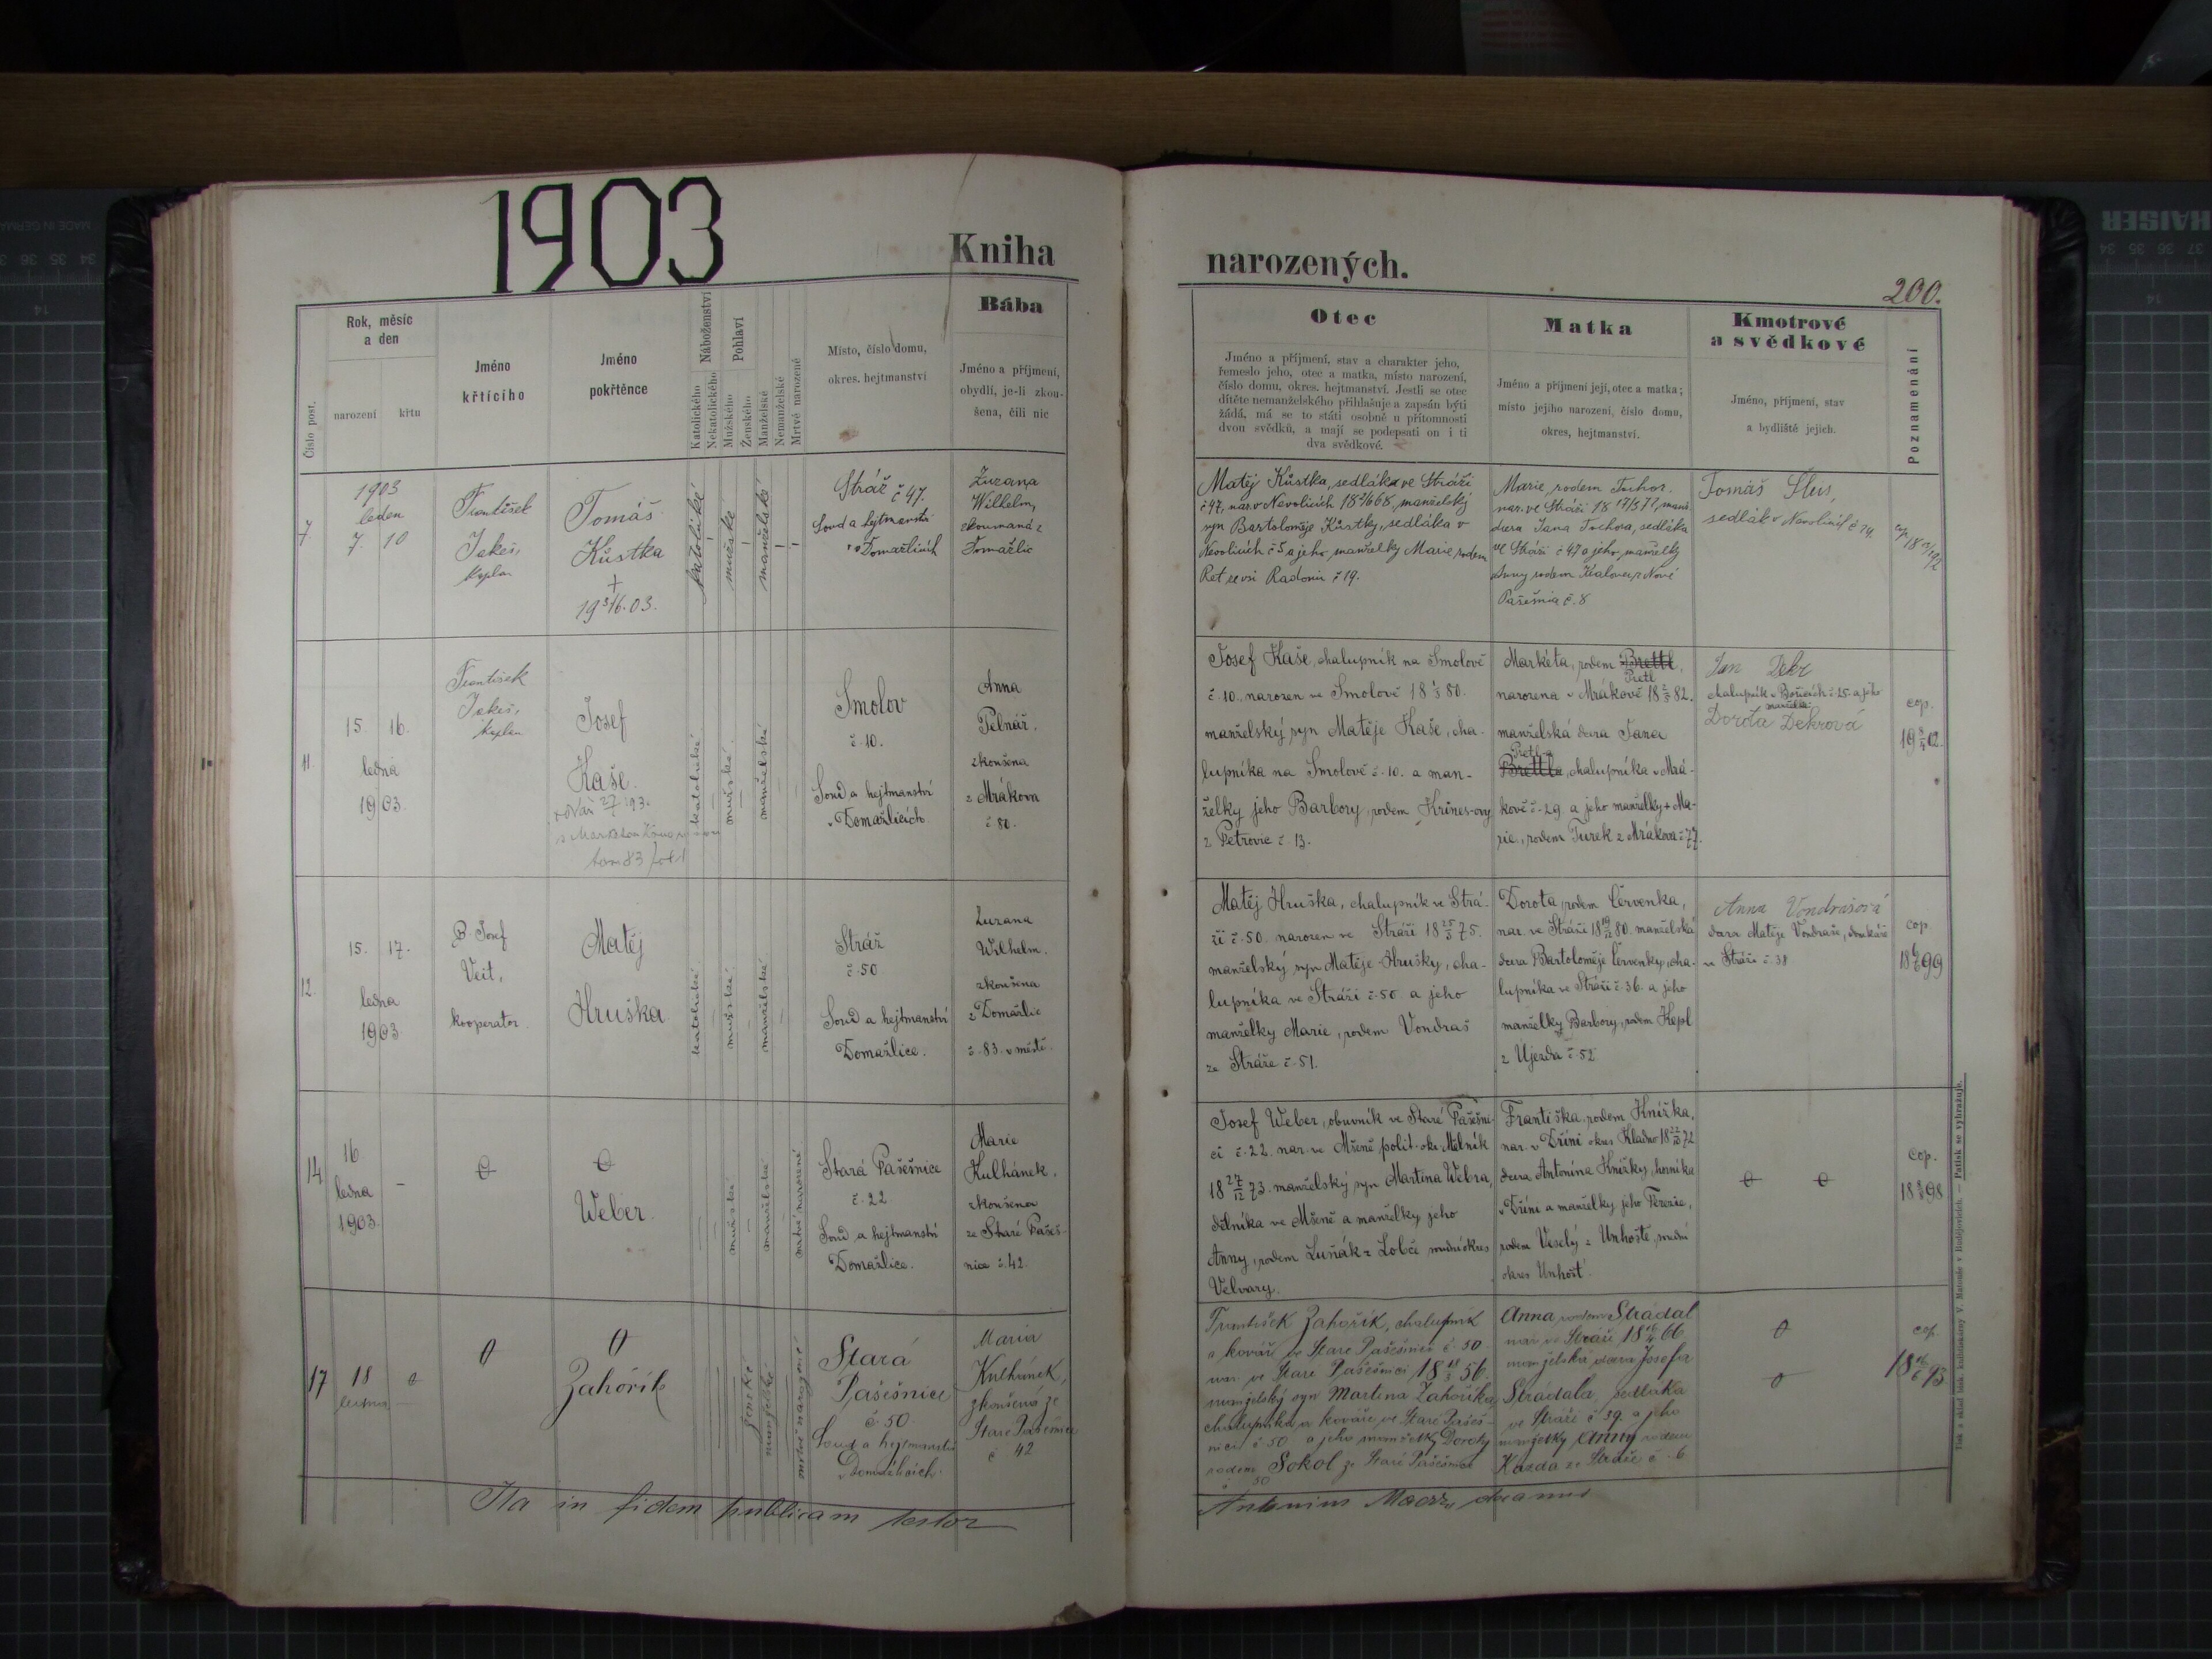 1903
Kniha
narozených.
200.
Číslo post.
Rok, měsíc
a den
narození
křtu
Jméno
křtícího
Jméno
pokřtěnce
Náboženství
Katolického
Nekatolického
Pohlaví
Mužského
Ženského
Manželské
Nemanželské
Mrtvě narozené
Místo, číslo domu,
okres. hejtmanství
Bába
Jméno a příjmení,
obydlí, je-li zkou-
šena, čili nic
Otec
Jméno a příjmení, stav a charakter jeho,
řemeslo jeho, otec a matka, místo narození,
číslo domu, okres. hejtmanství. Jestli se otec
dítěte nemanželského přihlašuje a zapsán býti
žádá, má se to státi osobně u přítomnosti
dvou svědků, a mají se podepsati on i ti
dva svědkové.
Matka
Jméno a příjmení její, otec a matka;
místo jejího narození, číslo domu,
okres, hejtmanství.
Kmotrové
a svědkové
Jméno, příjmení, stav
a bydliště jejich.
Poznamenání
7.
1903
leden
7. 10
František
Jakeš,
kaplan
Tomáš
Kůstka
+
19 3/6. 03.
katolické
mužské
manželské
Stráž č 47.
Soud a hejtmanství
v Domažlicích
Zuzana
Wilhelm,
zkoumaná z
Domažlic
Matěj Kůstka, sedlák ve Stráži
č 47, nar. v Nevolicích manželský
syn Bartoloměje Kůstky, sedláka v
Nevolicích č 5 a jeho manželky Marie, rodem
Ret ze vsi Radonic č 19.
Marie, rodem Tochor.
nar. ve Stráži
dcera Jana Tochora, sedláka
ve Stráži č 47 a jeho manželky
Anny rodem z Nové
Pašešnice č. 8
Tomáš
sedlák v Nevolicích
11.
15. 16.
ledna
1903.
František
Jakeš,
kaplan
Josef
Kaše.
katolické
mužské.
manželské
Smolov
č. 10.
Soud a hejtmanství
v Domažlicích.
Anna
Pelnář.
zkoušena
z Mrákova
č 80.
Josef Kaše, chalupník na Smolově
č. 10. narozen ve Smolově 18 80.
manželský syn Matěje Kaše, cha-
lupníka na Smolově č. 10. a man-
želky jeho Barbory, rodem
z Petrovic č. 13.
Markéta, rodem Brettl,
Pretl
narozena v Mrákově 18 82.
manželská dcera Jana
Pretl-a
Brettla, chalupníka v Mrá-
kově č. 29. a jeho manželky + Ma-
rie, rodem Turek z Mrákova č 77.
Jan
chalupník v č. 25. a jeho
manželka
Dorota
cop.
19 02.
12.
15. 17.
ledna
1903
P. Josef
Veit,
kooperator.
Matěj
Hruška
katolické
mužské
manželské
Stráž
č. 50
Soud a hejtmanství
Domažlice.
Zuzana
Wilhelm.
zkoušena
z Domažlic
č. 83. v městě.
Matěj Hruška, chalupník ve Strá-
ži č. 50. narozen ve Stráži 18 25/3 75.
manželský syn Matěje Hrušky, cha-
lupníka ve Stráži č. 50. a jeho
manželky Marie, rodem Vondraš
ze Stráže č. 51.
Dorota, rodem Červenka,
nar. ve Stráži 18 80. manželská
dcera Bartoloměje Červenky, cha-
lupníka ve Stráži č. 36. a jeho
manželky Barbory, rodem Kepl
z Újezda č. 52.
Anna Vondrašová
dcera Matěje Vondraše, domkáře
ve Stráži č. 38
cop.
18 99
14
16.
ledna
1903.
Weber.
mužské
manželské
mrtvě narozené.
Stará Pašešnice
č. 22
Soud a hejtmanství
Domažlice.
Marie
Kulhánek.
zkoušena
ze Staré Pašeš-
nice č. 42.
Josef Weber, obuvník ve Staré Pašešni-
ci č. 22. nar. ve Mšeně polit. okr. Mělník
18 27/12 73. manželský syn Martina Webra,
dělníka ve Mšeně a manželky jeho
Anny, rodem Luňák z Lobče soudní okres
Velvary.
Františka, rodem Knížka,
nar. v Dříni okres Kladno 18 72
dcera Antonína Knížky, horníka
v Dříni a manželky jeho Terezie,
rodem Veselý z Unhoště, soudní
okres Unhošť.
cop.
18 98
17
18
ledna
0
0
Zahořík
ženské
manželské
mrtvě narozené
Stará
Pašešnice
č. 50.
Soud a hejtmanství
v Domažlicích.
Maria
Kulhánek,
zkoušená ze
Staré Pašešnice
č 42
František Zahořík, chalupník
a kovář ve Staré Pašešnici č. 50
nar. ve Staré Pašešnici 18 56.
manželský syn Martina Zahoříka,
chalupníka a kováře ve Staré Pašeš-
nici č 50 a jeho manželky Doroty
rodem Sokol ze Staré Pašešnice
č 50
Anna rodem Stradal
nar. ve Stráži 18 66
manželská dcera Josefa
Stradala, sedláka
ve Stráži č 39. a jeho
manželky Anny rodem
Kazda ze Stráže č. 6
cop.
18 93
Ita in fidem publicam testor
Antonius decanus
Tisk a sklad knih. knihtiskárny V. Nanouše v Budějovicích. — Patisk se vyhražuje.